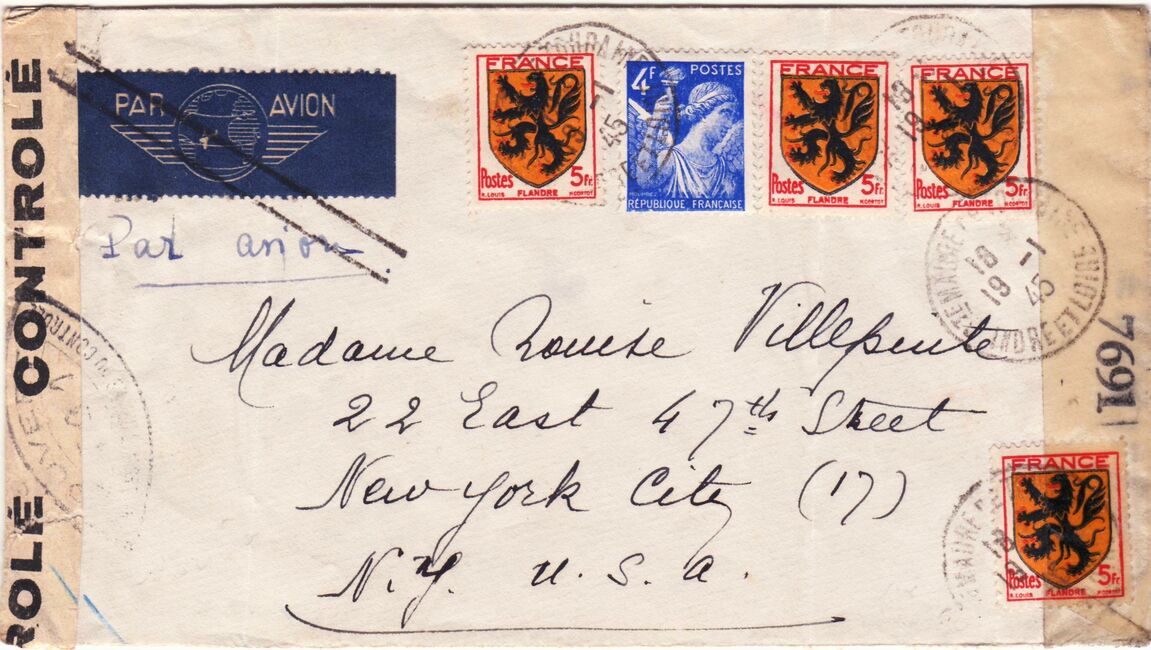 CONTROLÉ
ROLÉ
PAR AVION
Par avion
FRANCE
Postes 5Fr.
R. LOUIS FLANDRE H.CORTOT
4F POSTES
RÉPUBLIQUE FRANÇAISE
FRANCE
Postes 5Fr.
R. LOUIS FLANDRE H.CORTOT
FRANCE
Postes 5Fr.
R. LOUIS FLANDRE H.CORTOT
18 -1
19 45
INDRE ET LOIRE
Madame Louise Villepinte
22 East 47th Street
New York City (17)
N.Y. U.S.A.
7691
FRANCE
Postes 5Fr.
R. LOUIS FLANDRE H.CORTOT